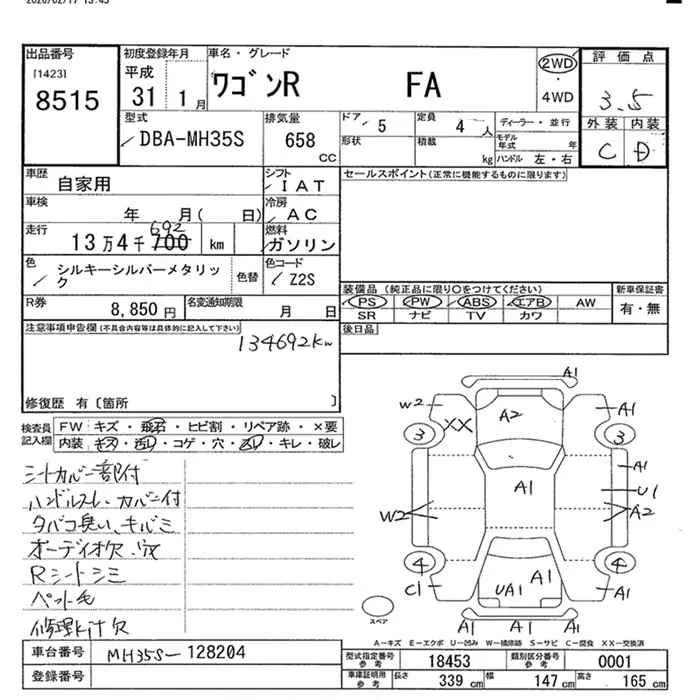 2026/02/17 13:45
出品番号
[1423]
8515
初度登録年月
平成
31 1月
車名・グレード
ワゴンR FA
2WD
・
4WD
評価点
3.5
外装 内装
C D
型式
DBA-MH35S
排気量
658
CC
ドア 5
定員 4 人
ディーラー・並行
形状
積載
kg
モデル年式 年
ハンドル 左・右
車歴
自家用
シフト
IAT
セールスポイント(正常に機能するものに限ります)
車検
年 月( 日)
冷房
AC
走行
692
13万4千700 km
燃料
ガソリン
色
シルキーシルバーメタリック
色替
色コード
Z2S
装備品(純正品に限り○をつけてください)
PS PW ABS エアB AW
SR ナビ TV カワ
新車保証書
有・無
R券
8,850円
名変通知期限
月 日
後日品
注意事項申告欄(不具合内容等は具体的に記入して下さい)
134692km
修復歴 有〔箇所 〕
検査員記入欄
FW キズ・飛石・ヒビ割・リペア跡・×要
内装 キズ・汚レ・コゲ・穴・スレ・キレ・破レ
シートカバー一部付
ハンドルスレ、カバー付
タバコ臭い、キルミ
オーディオ欠、穴
Rシートシミ
ペット毛
修理キット欠
A1
W2 XX A2 A1
3 3
A1
A1 U1
W2 A2
4 4
C1 UA1 A1 A1
A1 A1
スペア
A-キズ E-エクボ U-凹み W-補修跡 S-サビ C-腐食 XX-交換済
車台番号
MH35S-128204
登録番号
型式指定番号
参考
18453
類別区分番号
参考
0001
車庫証明用
参考
長さ 339 cm
幅 147 cm
高さ 165 cm